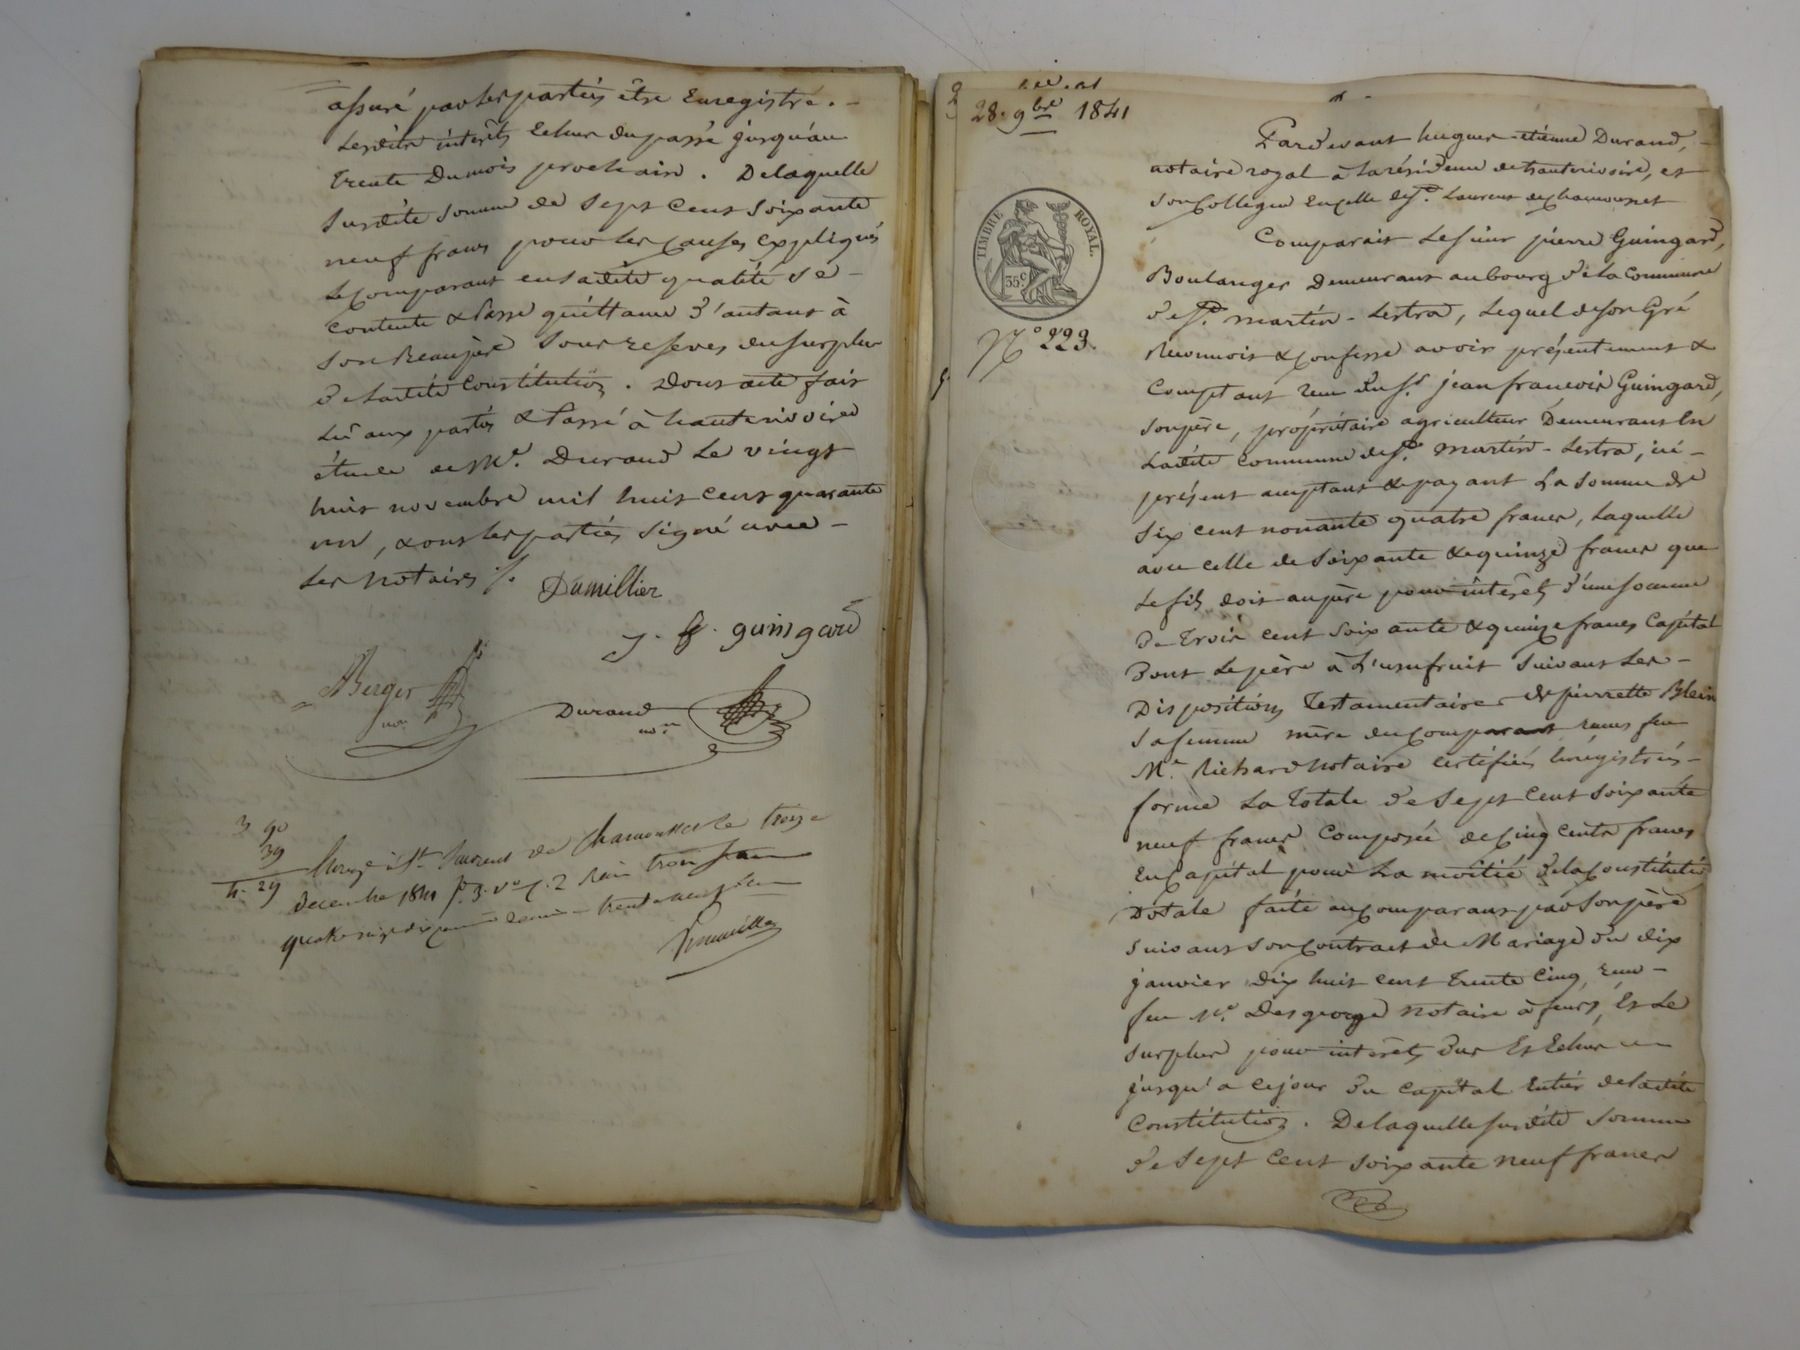 assuré par les parties être Enregistré. -
Lesdits intérêts Echus du passé jusqu'au
trente Du mois prochain. De laquelle
susdite somme de Sept Cent Soixante
neuf francs pour les causes Expliqués
le comparant en sadite qualité se -
contente & Passe quittance d'autant à
son Beaupère sous reserves du surplus
de ladite Constitution. Dont acte fait
lû aux parties & Passé à hauterivoire
étude de Me. Durand Le vingt
huit novembre mil huit cent quarante
un, & ont les parties signé avec -
Les Notaires ./.
Dumillier
j. f. guingard
Berger
nore
Durand
nore
3 90
39
4. 29
Enregé à St. Laurent de Chamousset le treize
decembre 1841 fo 3. vo c. 2 Reçu trois francs
quatre vingt dix centimes Decime trente neuf centimes
28. 9bre 1841
Pardevant hugues-etienne Durand, -
notaire royal à la résidence de hauterivoire, et
son Collègue En celle de St. Laurent de Chamousset
Comparait Le sieur pierre Guingard,
Boulanger Demeurant au bourg de la Commune
de St. martin-Lestra, Lequel de son Gré
Reconnoit & confesse avoir présentement &
Comptant reçu du Sr. jean francois Guingard,
son père, propriétaire agriculteur Demeurant En
Ladite commune de St. martin-Lestra, ici -
présent acceptant & payant La somme de
six cent nonante quatre francs, Laquelle
avec celle de soixante & quinze francs que
Le fils doit au père pour intérêts d'une somme
De Trois cent soixante & quinze francs Capital
Dont Le père à L'usufruit suivant Les -
Dispositions Testamentaires de pierrette Blein
sa femme mère du comparant reçues feu
Me. Richard Notaire certifiées Enrégistrées -
forme La Totale de sept cent soixante
neuf francs Composée de Cinq cents francs
En Capital pour La moitié de la Constitution
Dotale faite au comparant par son père
suivant son Contract de Mariage du dix
janvier dix huit cent Trente Cinq, reçu -
feu Me. Desgeorge Notaire à feurs, Et Le
surplus pour intérêts dus Et Echus
jusqu'a ce jour du capital Entier de ladite
Constitution. De laquelle susdite Somme
de Sept Cent Soixante neuf francs
TIMBRE ROYAL.
35c
No 223.